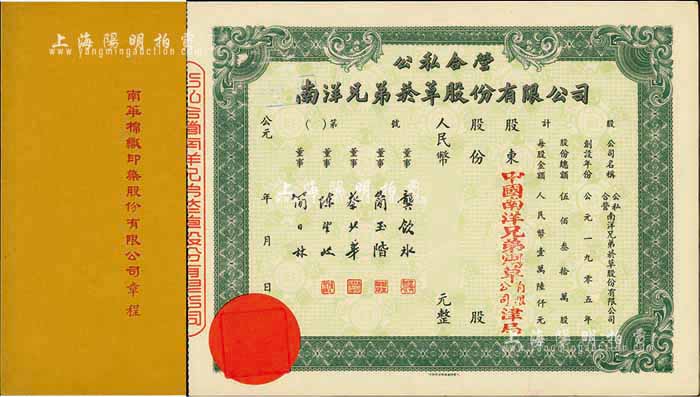 公私合營
南洋兄弟菸草股份有限公司
股
公司名稱 公私合營 南洋兄弟菸草股份有限公司
創設年份 公元一九零五年
計
股份總額 伍佰叁拾萬股
每股金額 人民幣壹萬陸仟元
股東 中國南洋兄弟烟草有限公司津局
股份 股
人民幣 元整
號
第
( )
董事 龔飲冰
董事 簡玉階
董事
董事
董事 簡日林
公元 年 月 日
南華棉織印染股份有限公司章程
公私合營南洋兄弟菸草股份有限公司
上海陽明拍賣
www.yangmingauction.com
上海陽明拍賣
www.yangmingauction.com